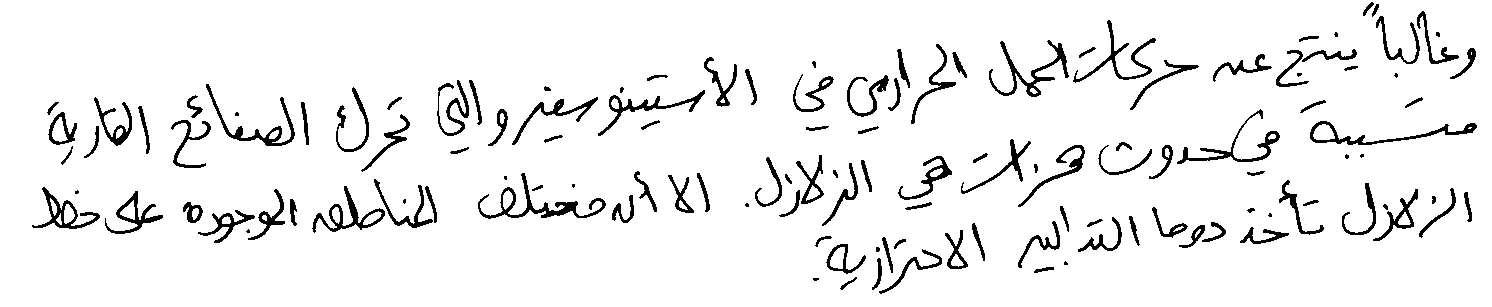 وغالباً ينتج عن حركات الحمل الحراري في الأستينوسفير والتي تحرك الصفائح القارية
متسببة في حدوث هزات هي الزلازل. الا أن مختلف المناطق الموجوده على خط
الزلازل تأخذ دوما التدابير الاحترازية.